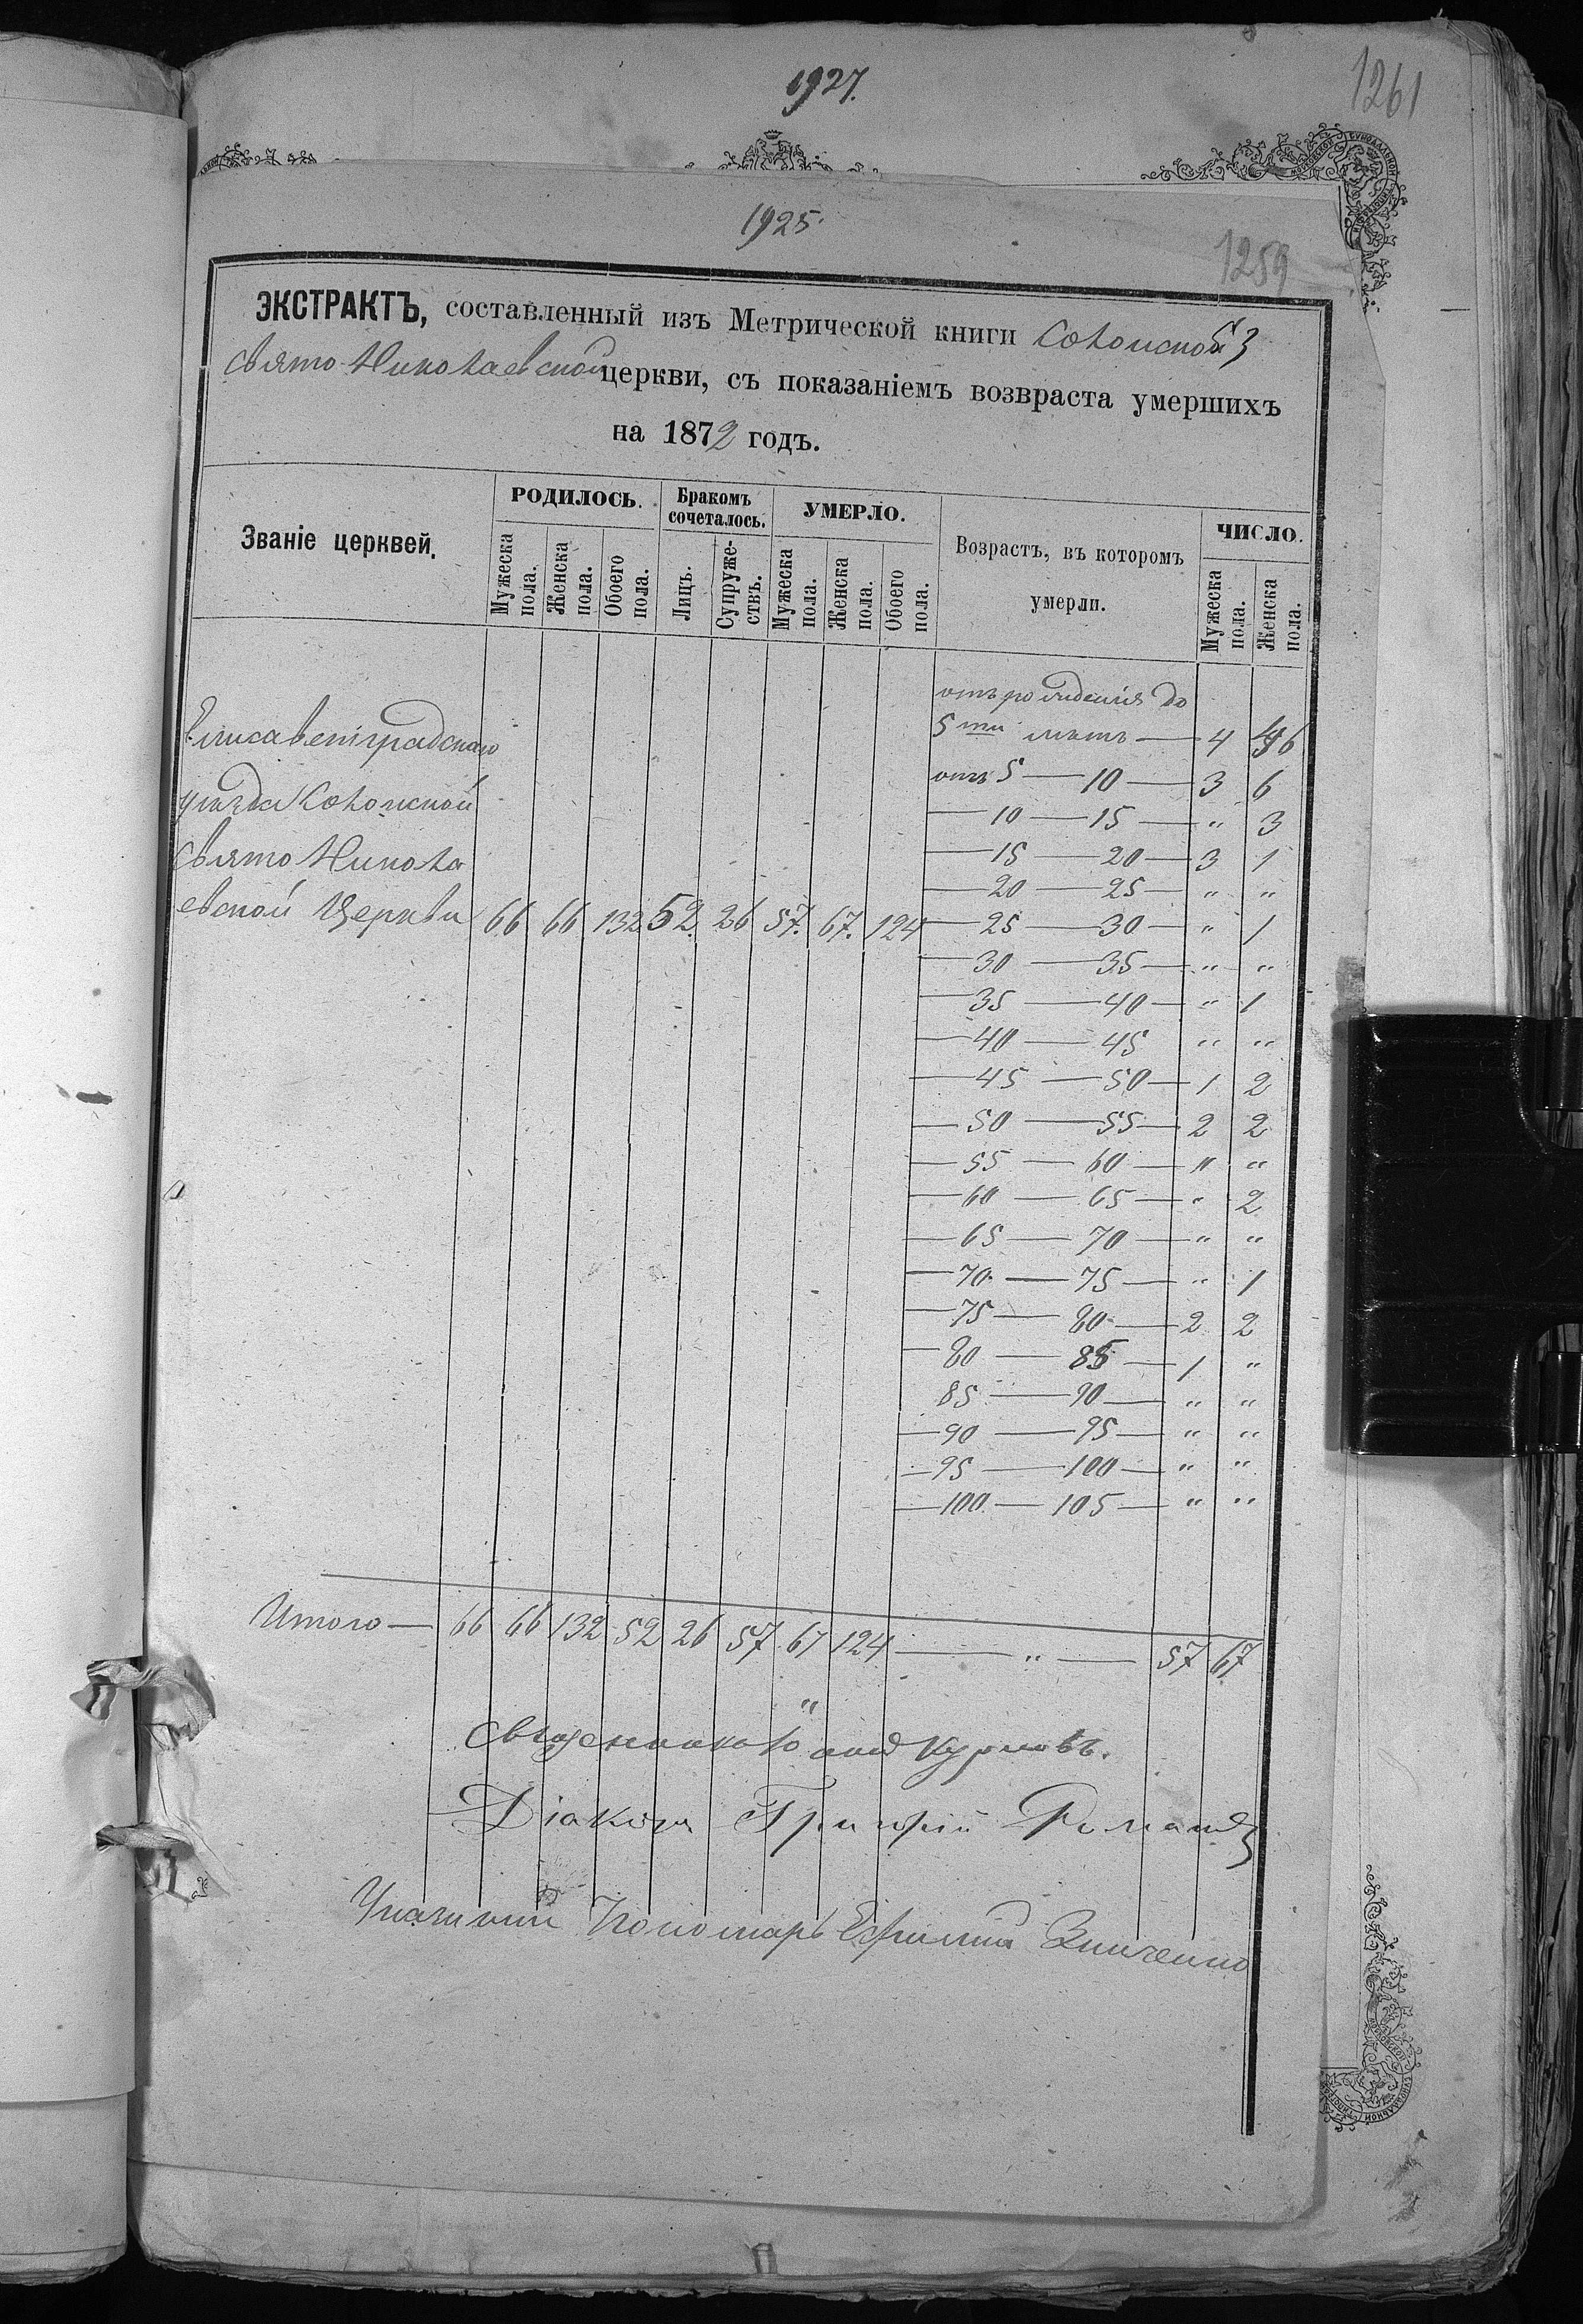 1927.
1261
1925.
1259
ЭКСТРАКТЪ, составленный изъ Метрической книги
Свято Николаевской церкви, съ показаніемъ возвраста умершихъ
на 1872 годъ.
Званіе церквей. РОДИЛОСЬ. Бракомъ сочеталось. УМЕРЛО. Возрастъ, въ которомъ умерли. ЧИСЛО.
Мужеска пола. Женска пола. Обоего пола. Лицъ. Супружествъ. Мужеска пола. Женска пола. Обоего пола. Мужеска пола. Женска пола.
отъ рожденія до
Елисаветградскаго 5ти лѣтъ — 4 46
отъ 5 — 10 — 3 6
уѣзда
— 10 — 15 — " 3
Свято Никола — 15 — 20 — 3 1
— 20 — 25 — " "
евской Церкви 66 66 132 52. 26 57. 67. 124 — 25 — 30 — " 1
— 30 — 35 — " "
— 35 — 40 — " 1
— 40 — 45 " "
— 45 — 50 — 1 2
— 50 — 55 — 2 2
— 55 — 60 — " "
— 60 — 65 — " 2
— 65 — 70 — " "
— 70 — 75 — " 1
— 75 — 80 — 2 2
— 80 — 85 — 1 "
85 — 90 — " "
— 90 — 95 — " "
— 95 — 100 — " "
— 100 — 105 — " "
Итого — 66 66 132 52 26 57 67 124 — " — 57 67
Діаконъ Григорій
Пономарь Ефимій Зинченко